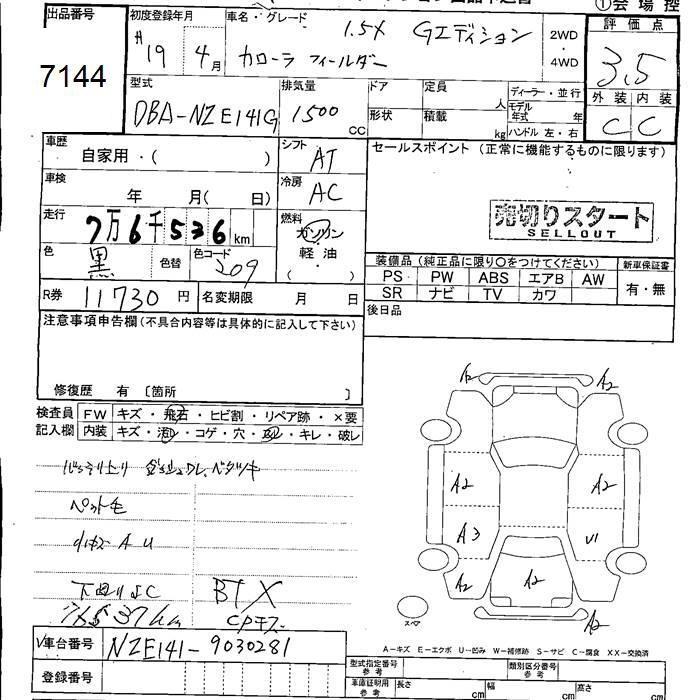 ①会場控
出品番号
7144
初度登録年月
H19 年 4月
車名・グレード
1.5X Gエディション
カローラ フィールダー
2WD
・
4WD
評価点
3.5
外装 内装
C C
型式
DBA-NZE141G
排気量
1500 CC
ドア
形状
定員 人
積載 kg
ディーラー・並行
モデル年式 年
ハンドル 左・右
車歴
自家用・( )
シフト
AT
車検
年 月( 日)
冷房
AC
走行
7万6千536 km
燃料
ガソリン
軽・油
( )
色
黒
色替
色コード
209
R券 11730 円
名変期限 月 日
セールスポイント (正常に機能するものに限ります)
売切りスタート
SELLOUT
装備品 (純正品に限り○をつけてください)
新車保証書
PS PW ABS エアB AW
SR ナビ TV カワ
有・無
後日品
注意事項申告欄 (不具合内容等は具体的に記入して下さい)
修復歴 有 〔箇所 〕
検査員
記入欄
FW キズ・飛石・ヒビ割・リペア跡・×要
内装 キズ・汚れ・コゲ・穴・・キレ・破レ
ペット毛
小キズ A U
下回り S C
BTX
76537km
車台番号
NZE141-9030281
登録番号
A2
A2
A2
A2
A3
U1
A2
A2
A2
A2
スペア
A-キズ E-エクボ U-凹み W-補修跡 S-サビ C-腐食 XX-交換済
型式指定番号
参考
類別区分番号
参考
車庫証明用
参考
長さ cm
幅 cm
高さ cm